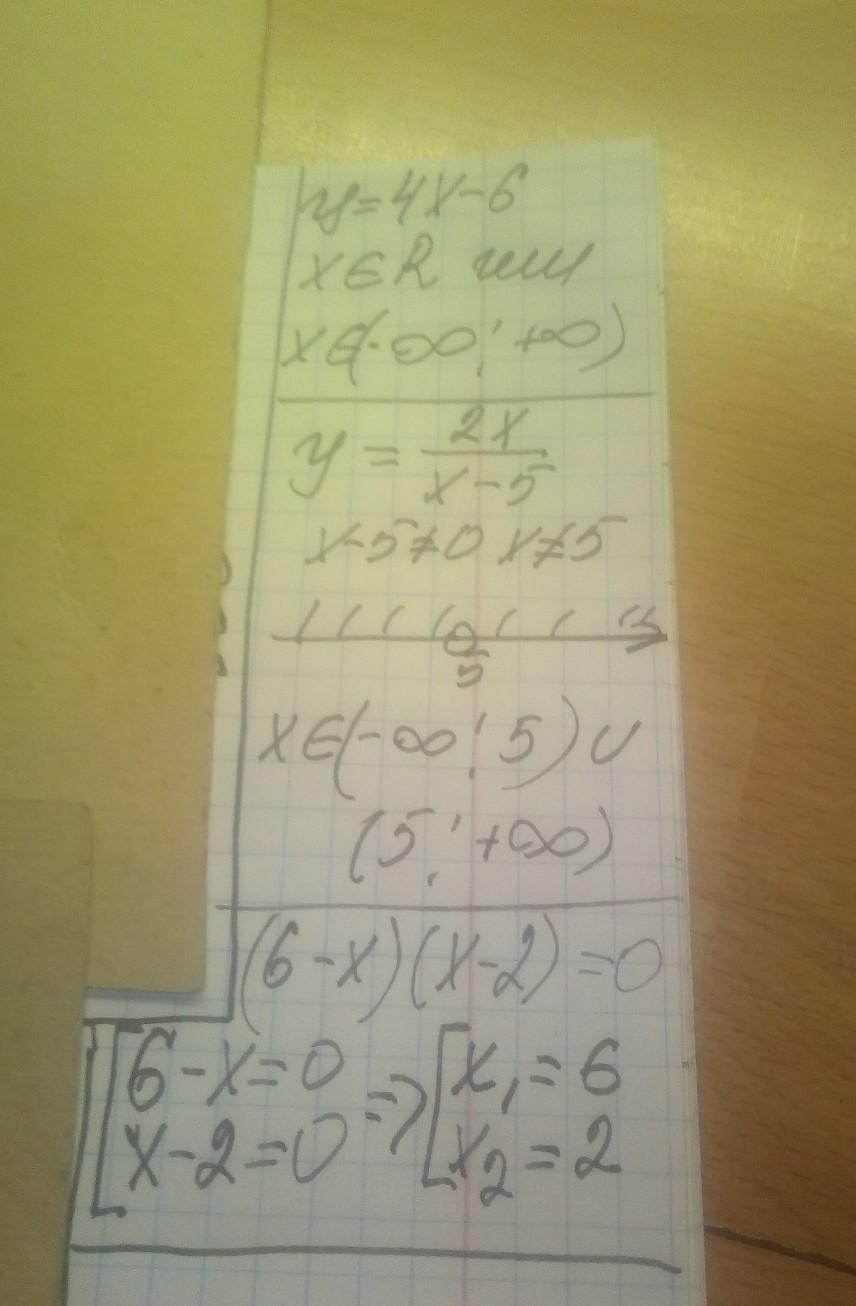 y=4x-6
x∈R или
x∈(-∞; +∞)
y = 2x/(x-5)
x-5≠0 x≠5
5
x∈(-∞; 5) ∪
(5; +∞)
(6-x)(x-2)=0
[6-x=0 => [x₁=6
x-2=0 x₂=2